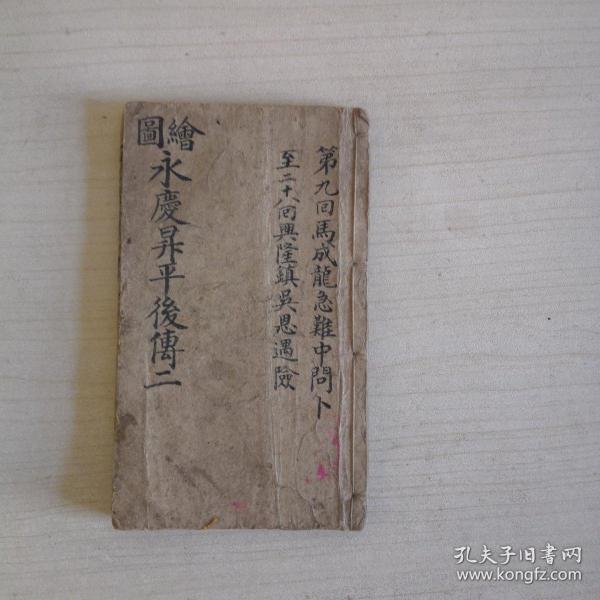 第九回馬成龍急難中問卜
至二十八回興隆鎮吳恩遇險
繪圖
永慶昇平後傳二
孔夫子旧书网
www.kongfz.com